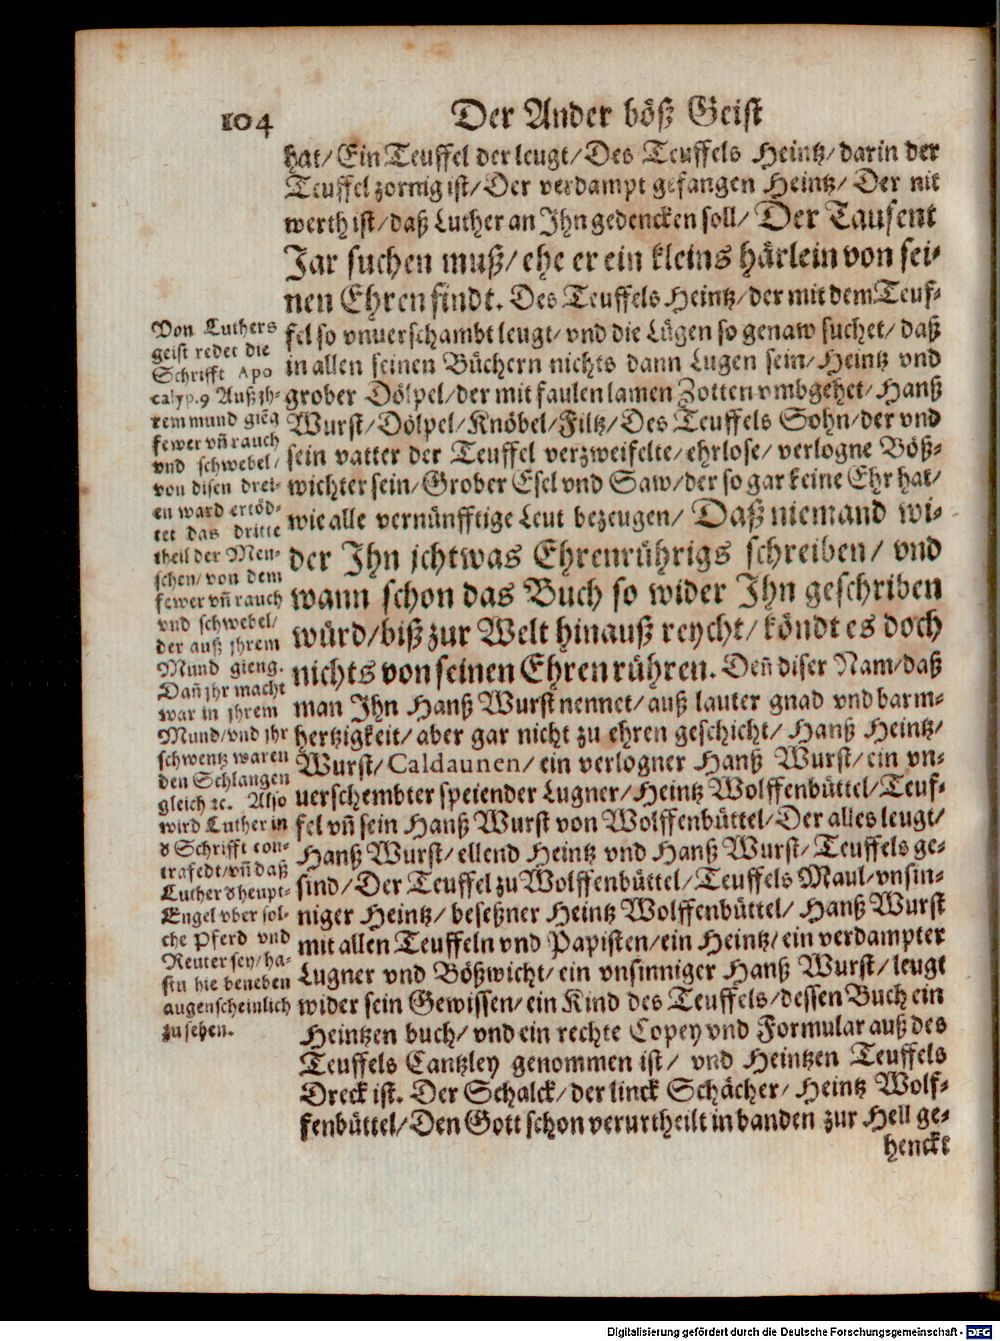 104
Der Ander böß Geist
hat/ Ein Teuffel der leugt/ Des Teuffels Heintz/ darin der
Teuffel zornig ist/ Der verdampt gefangen Heintz/ Der nit
werth ist/ daß Luther an Ihn gedencken soll/ Der Tausent
Jar suchen muß/ ehe er ein kleins härlein von sei-
nen Ehren findt. Des Teuffels Heintz/ der mit dem Teuf-
fel so vnuerschambt leugt/ vnd die Lügen so genaw suchet/ daß
in allen seinen Büchern nichts dann Lugen sein/ Heintz vnd
grober Dölpel/ der mit faulen lamen Zotten vmbgehet/ Hanß
Wurst/ Dölpel/ Knöbel/ Filtz/ Des Teuffels Sohn/ der vnd
sein vatter der Teuffel verzweifelte/ ehrlose/ verlogne Böß-
wichter sein/ Grober Esel vnd Saw/ der so gar keine Ehr hat/
wie alle vernünfftige Leut bezeugen/ Daß niemand wi-
der Ihn ichtwas Ehrenrührigs schreiben/ vnd
wann schon das Buch so wider Ihn geschriben
würd/ biß zur Welt hinauß reycht/ köndt es doch
nichts von seinen Ehren rühren. Deñ diser Nam/ daß
man Ihn Hanß Wurst nennet/ auß lauter gnad vnd barm-
hertzigkeit/ aber gar nicht zu ehren geschicht/ Hanß Heintz/
Wurst/ Caldaunen/ ein verlogner Hanß Wurst/ ein vn-
uerschembter speiender Lugner/ Heintz Wolffenbüttel/ Teuf-
fel vñ sein Hanß Wurst von Wolffenbüttel/ Der alles leugt/
Hanß Wurst/ ellend Heintz vnd Hanß Wurst/ Teuffels ge-
sind/ Der Teuffel zu Wolffenbüttel/ Teuffels Maul/ vnsin-
niger Heintz/ beseßner Heintz Wolffenbüttel/ Hanß Wurst
mit allen Teuffeln vnd Papisten/ ein Heintz/ ein verdampter
Lugner vnd Bößwicht/ ein vnsinniger Hanß Wurst/ leugt
wider sein Gewissen/ ein Kind des Teuffels/ dessen Buch ein
Heintzen buch/ vnd ein rechte Copey vnd Formular auß des
Teuffels Cantzley genommen ist/ vnd Heintzen Teuffels
Dreck ist. Der Schalck/ der linck Schächer/ Heintz Wolf-
fenbüttel/ Den Gott schon verurtheilt in banden zur Hell ge-
henckt
Von Luthers
geist redet die
Schrifft Apo
calyp. 9 Auß jh-
rem mund gieg
fewer vñ rauch
vnd schwebel/
von disen drei-
en ward ertöd-
tet das dritte
theil der Men-
schen/ von dem
fewer vñ rauch
vnd schwebel/
der auß jhrem
Mund gieng.
Dañ jhr macht
war in jhrem
Mund/ vnd jhr
schwentz waren
den Schlangen
gleich ꝛc. Also
wird Luther in
d Schrifft con-
trafedt/ vñ daß
Luther d heupt-
Engel vber sol-
che Pferd vnd
Reuter sey/ ha-
stu hie beneben
augenscheinlich
zu sehen.
Digitalisierung gefördert durch die Deutsche Forschungsgemeinschaft - DFG